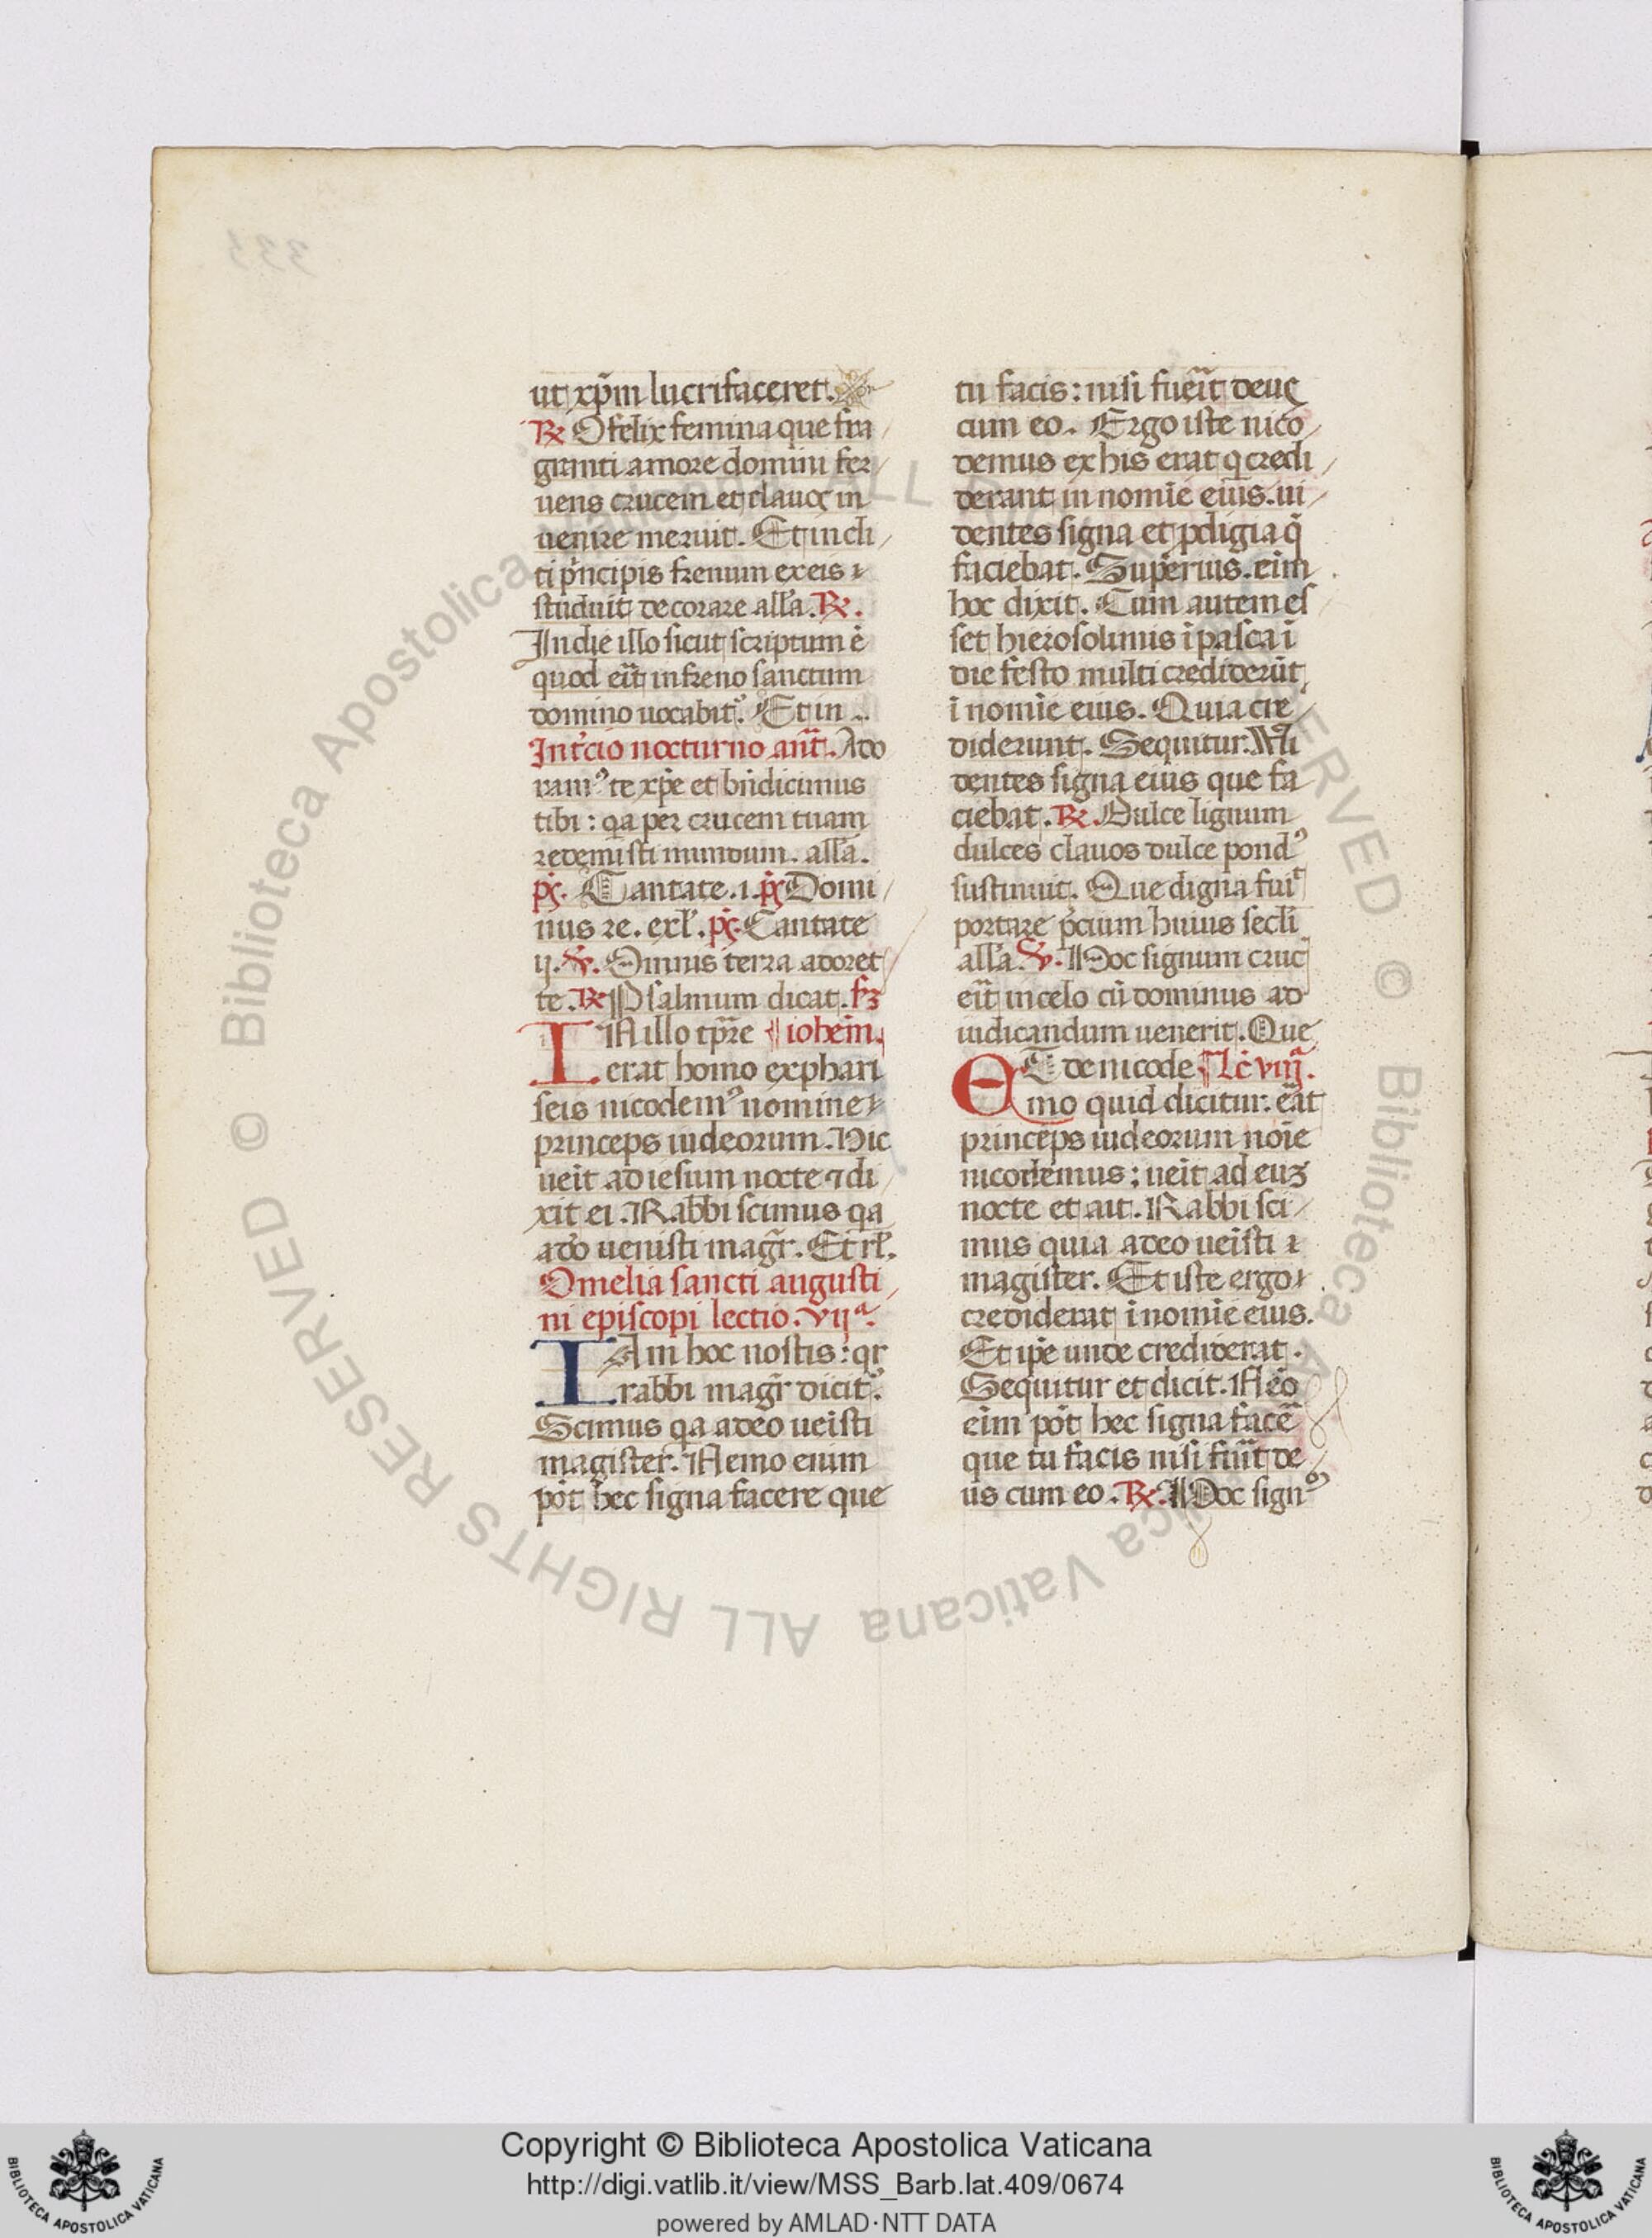 333
ut xp̄m lucrifaceret.
℞ O felix femina que fra
granti amore domini fer
uens crucem et clauos in
uenire meruit. Et incli
ti p̄ncipis frenum ex eis
studuit decorare all̄a. ℞.
In die illo sicut scriptum ē
quod erīt in freno sanctum
domino uocabit᷒. Et in ..
In t̄cio nocturno ant̄. Ado
ram᷒ te xp̄e et bn̄dicimus
tibi : qa per crucem tuam
redemisti mundum. all̄a.
pš. Cantate .i. pš Domi
nus re. exl̄. pš. Cantate
ij. ℣. Omnis terra adoret
te. ℞ Psalmum dicat. s3
IN illo tp̄re ¶ ioħem.
erat homo ex phari
seis nicodem᷒ nomine
princeps iudeorum. Hic
ueīt ad iesum nocte ⁊ di
xit ei. Rabbi scimus qa
a dō uenisti magr̄. Et rl̄.
Omelia sancti augusti
ni episcopi lectio. vijᵃ.
IAm hoc nostis : qr
rabbi magr̄ dicit᷒.
Scimus qa a deo ueīsti
magister. Nemo enim
pōt hec signa facere que
tu facis : nisi fuēit deus
cum eo. Ergo iste nico
demus ex his erat q credi
derant in nomīe eius. ui
dentes signa et pdigia q̄
faciebat. Superius. eīm
hoc dixit. Cum autem es
set hierosolimis ī pasca ī
die festo multi crediderūt
ī nomīe eius. Quia cre
diderunt. Sequitur. Ui
dentes signa eius que fa
ciebat. ℞. Dulce lignum
dulces clauos dulce pond᷒
sustinuit. Que digna fuit
portare p̄cium huius secl̄i
all̄a. ℣. Hoc signum cruc
erīt in celo cū dominus ad
iudicandum uenerit. Que
ET de nicode ¶ Lc̄ viij.
mo quid dicitur. eāt
princeps iudeorum noīe
nicodemus : ueīt ad euꝫ
nocte et ait. Rabbi sci
mus quia a deo ueīsti
magister. Et iste ergo
crediderat ī nomīe eius.
Et ip̄e unde crediderat.
Sequitur et dicit. Nēo
eīm pōt hec signa facē
que tu facis nisi fuīt de
us cum eo. ℞. Hoc sign᷒
Copyright © Biblioteca Apostolica Vaticana
http://digi.vatlib.it/view/MSS_Barb.lat.409/0674
powered by AMLAD·NTT DATA
BIBLIOTECA APOSTOLICA VATICANA
BIBLIOTECA APOSTOLICA VATICANA
© Biblioteca Apostolica Vaticana ALL RIGHTS RESERVED © Biblioteca Apostolica Vaticana ALL RIGHTS RESERVED